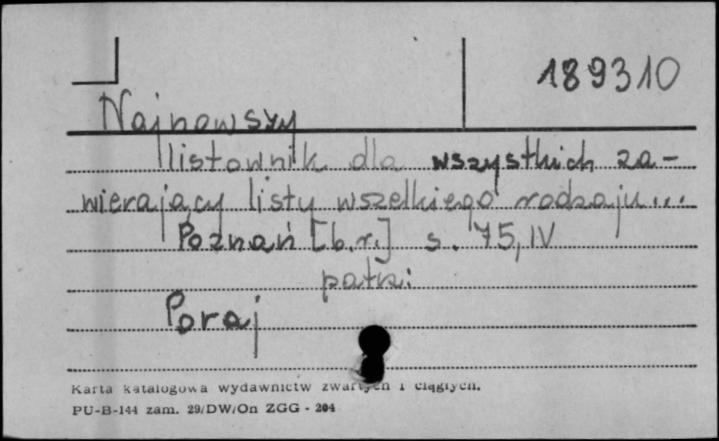 189310
Najnowszy
listownik dla wszystkich za-
wierający listy wszelkiego rodzaju...
Poznań [b.r.] s. 75, IV
patrz:
Poraj
Karta katalogowa wydawnictw zwartych i ciągłych.
PU-B-144 zam. 29/DW/On ZGG - 204